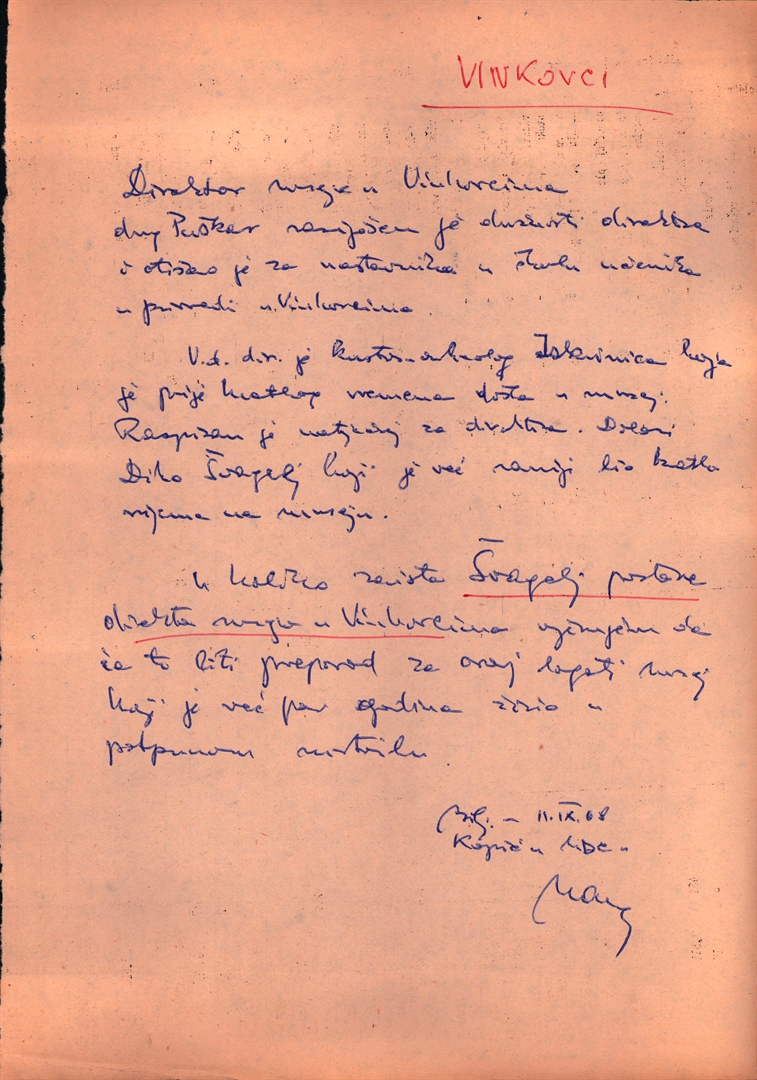 VINKOVCI
Direktor muzeja u Vinkovcima
drug Puškar razriješen je dužnosti direktora
i otišao je za nastavnika u školu učenika
u privredi u Vinkovcima.
V.d. dir. je kustos-arheolog Iskra koja
je prije kratkog vremena došla u muzej.
Raspisan je natječaj za direktora. Dolazi
Dido Švagelj koji je već ranije bio kratko
vrijeme na muzeju.
U koliko zaista Švagelj postane
direktor muzeja u Vinkovcima vjerujem da
će to biti preporod za ovaj bogati muzej
koji je već par godina u
potpunom mrtvilu.
Bilj. – 11.IX.68
u MDC-u